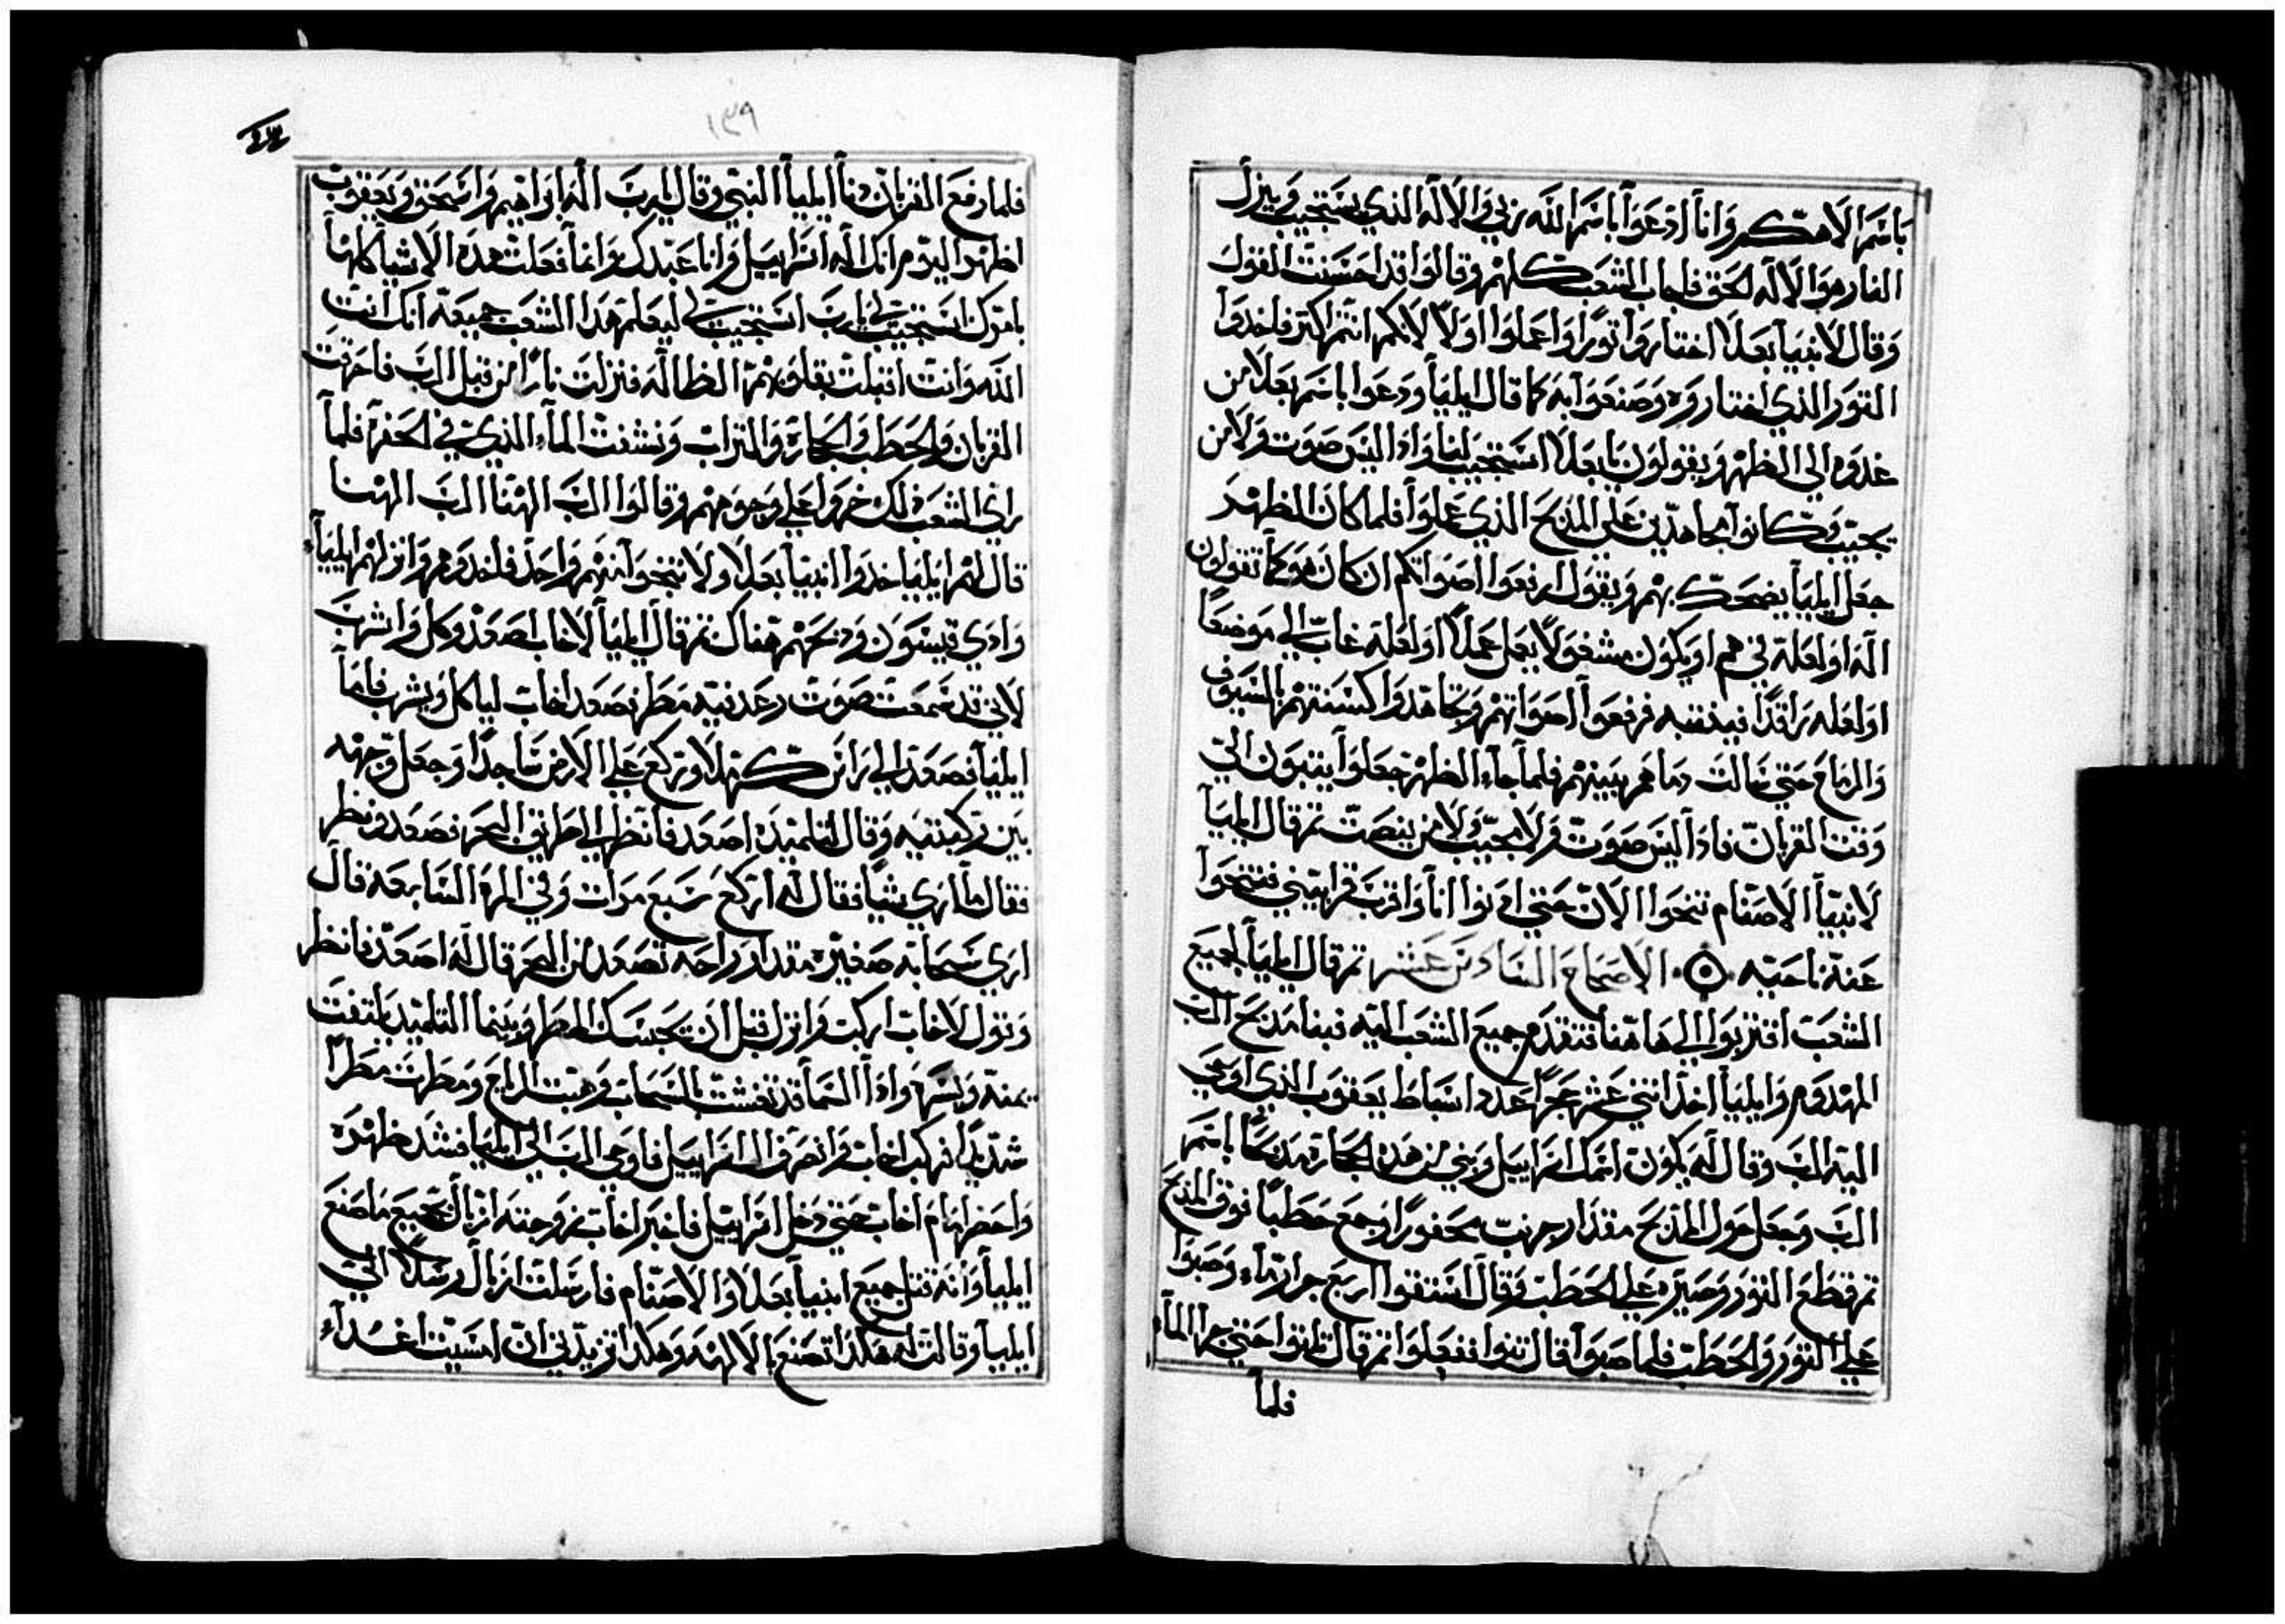 باسم الاهتكم وانا ادعوا باسم الله ربي والاله الذي يستجيب وينزل
النار هو الاله الحق فاجاب الشعب كلهم وقالوا قد احسنت القول
وقال لانبيا بعلا اختاروا ثورا واعملوا اولا لانكم انتم اكثر فاخدوا
الثور الذي اختاروه وصنعوا به كما قال ايليا ودعوا باسم بعلا من
غدوه الي الظهر ويقولون يا بعلا استجيب لنا واذا ليس صوت ولا من
يجيب وكانوا مجاهدين علي المذبح الذي عملوا فلما كان الظهر
جعل ايليا يضحك بهم ويقول ارفعوا اصواتكم ان كان هو كما تقولون
اله او لعله في هم او يكون مشغولا يعمل عملا او لعله غاب الي موضعا
او لعله راقدا فينتبه فرفعوا اصواتهم وتجاهدوا كسنتهم بالسيوف
والرماح حتي سالت دماهم بينهم فلما جاء الظهر جعلوا يتنبون الي
وقت القربان فاذا ليس صوت ولا مجيب ولا من ينصت ثم قال ايليا
لانبيا الاصنام تنحوا الان حتي ادنوا انا واقرب قرابيني فتنحوا
عنه ناحيه الاصحاح السادس عشر ثم قال ايليا لجميع
الشعب اقتربوا الي هاهنا فتقدم جميع الشعب اليه فبنا مذبح الرب
المهدوم وايليا اخذ اثني عشر حجرا عدد اسباط يعقوب الذي اوحي
اليه الرب وقال له يكون اسمك اسراييل وبني من هذه الحجارة مذبحا باسم
الرب وجعل حول المذبح مقدار جريب محفورا وجمع حطبا فوق المذبح
ثم قطع الثور وصيره علي الحطب وقال استقوا اربع جرار ماء وصبوا
علي الثور والحطب فلما صبوا قال ثنوا ففعلوا ثم قال ثلثوا حتي جرا الماء
فلما
١٣٩
فلما رفع القربان دنا ايليا النبي وقال يا رب اله ابراهيم واسحق ويعقوب
اظهر اليوم انك اله اسراييل وانا عبدك وانما فعلت هذه الاشيا كلها
بامرك استجيب لي يا رب استجيب لي ليعلم هذا الشعب جميعه انك انت
الله وانت اقبلت بقلوبهم الظالة فنزلت نارا من قبل الرب فاحرقت
القربان والحطب والحجارة والتراب ونشفت الماء الذي في الحفرة فلما
راي الشعب ذلك خروا علي وجوههم وقالوا الرب الهنا الرب الهنا
قال لهم ايليا خدوا انبيا بعلا ولا تنجوا منهم واحد فاخدوهم وانزلهم ايليا
وادي قيسون ودبحهم هناك ثم قال ايليا لاخاب اصعد وكل واشرب
لاني قد سمعت صوت رعد فيه مطر فصعد اخاب لياكل ويشرب فاما
ايليا فصعد الي راس كرملا وركع علي الارض ساجدا وجعل وجهه
بين ركبتيه وقال لتلميذه اصعد فانظر الي طريق البحر فصعد ونظر
فقال ما اري شيا فقال له اركع سبع مرات وفي المرة السابعه قال
اري سحابه صغيره مقدار راحه تصعد من البحر قال له اصعد فانظر
وتول لاخاب اركب وانزل قبل ان يحبسك المطر وبينما التلميذ يلتفت
يمنه ويسره واذا السما قد تغشت بالسحاب وهبت الرياح ومطرت مطرا
شديدا فركب اخاب وانصرف الي اسراييل فاوحي الرب الي ايليا فشد ظهره
واحضر امام اخاب حتي دخل اسراييل فاخبر اخاب زوجته ازبال بجميع ما صنع
ايليا وانه قتل جميع انبيا بعلا والاصنام فارسلت ازبال رسلا الي
ايليا وقالت له هكذا تصنع بي الالهه وهكذا تزيدني ان امسيت غداء